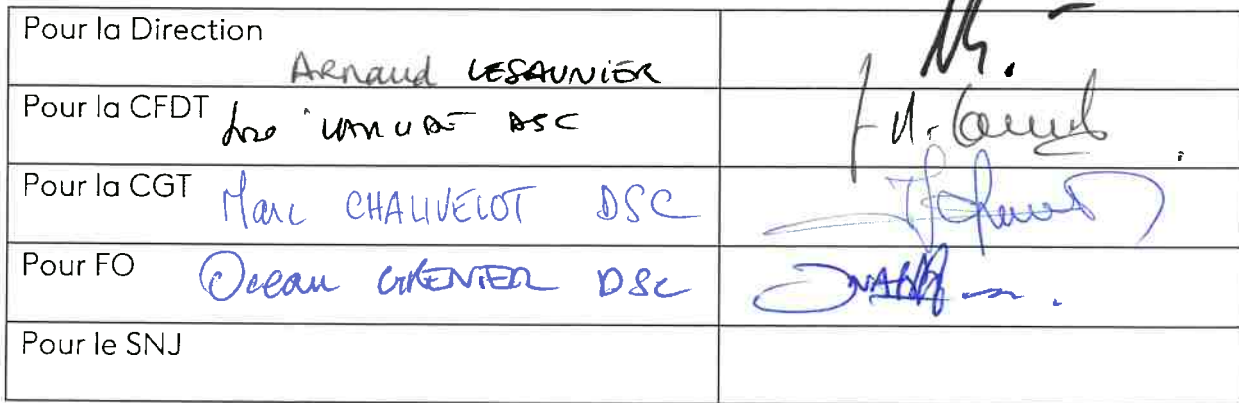 Pour la Direction
Arnaud LESAUNIER
Pour la CFDT DSC
Pour la CGT Marc CHAUVELOT DSC
Pour FO Ocean GRENIER DSC
Pour le SNJ